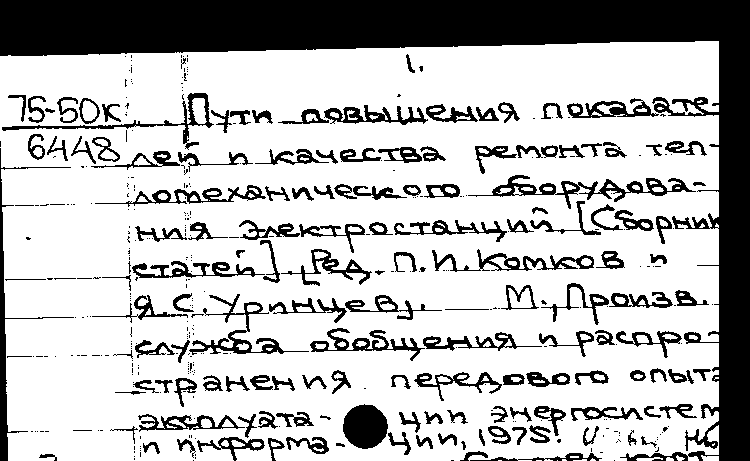 1.
75-50к Пути повышения показате-
6448 лей и качества ремонта теп-
ломеханического оборудова-
ния электростанций. [Сборник
статей]. [Ред. П.И.Комков и
Я.С.Уринцев]. М., Произв.
служба обобщения и распро-
странения передового опыта
эксплуата- ции энергосистем
и информа- ции, 1975.